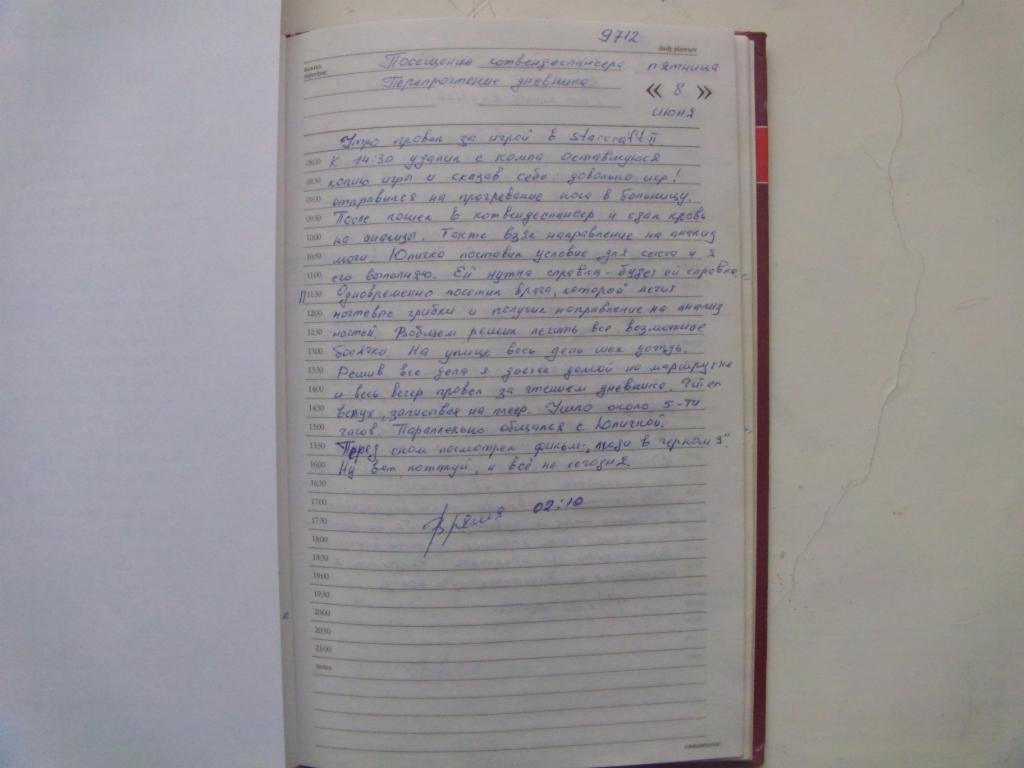 9712
daily planner
Посещению кожвендеспансера
пятница
Перепрочтение дневника
« 8 »
июня
Утро провел за игрой в Starcraft II.
08:00 К 14:30 удалил с компа оставшуюся
08:30 копию игры и сказав себе: довольно игр!
09:00 отправился на прогревание носа в больницу.
09:30 После пошел в кожвендеспансер и сдал кровь
10:00 на анализы. Также взял направление на анализ
10:30 мочи. Юличка поставил условие для секса и я
11:00 его выполняю. Ей нужна справка - будет ей справка.
11:30 Одновременно посетил врача, который лечит
12:00 ногтевые грибки и получил направление на анализ
12:30 ногтей. Вобщем решил лечить все возможные
13:00 болячки. На улице весь день шел дождь.
13:30 Решив все дела я доехал домой на маршрутке
14:00 и весь вечер провел за чтением дневника. Читал
14:30 вслух, записывая на плеер. Ушло около 5-ти
15:00 часов. Параллельно общался с Юличкой.
15:30 Перед сном посмотрел фильм: „Люди в черном 3".
16:00 Ну вот, пожалуй, и всё на сегодня.
16:30
17:00
Время 02:10
17:30
18:00
18:30
19:00
19:30
20:00
20:30
21:00
notes